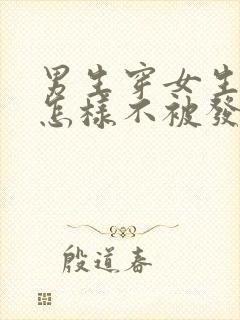 男生穿女生
怎樣不被發
殷道春